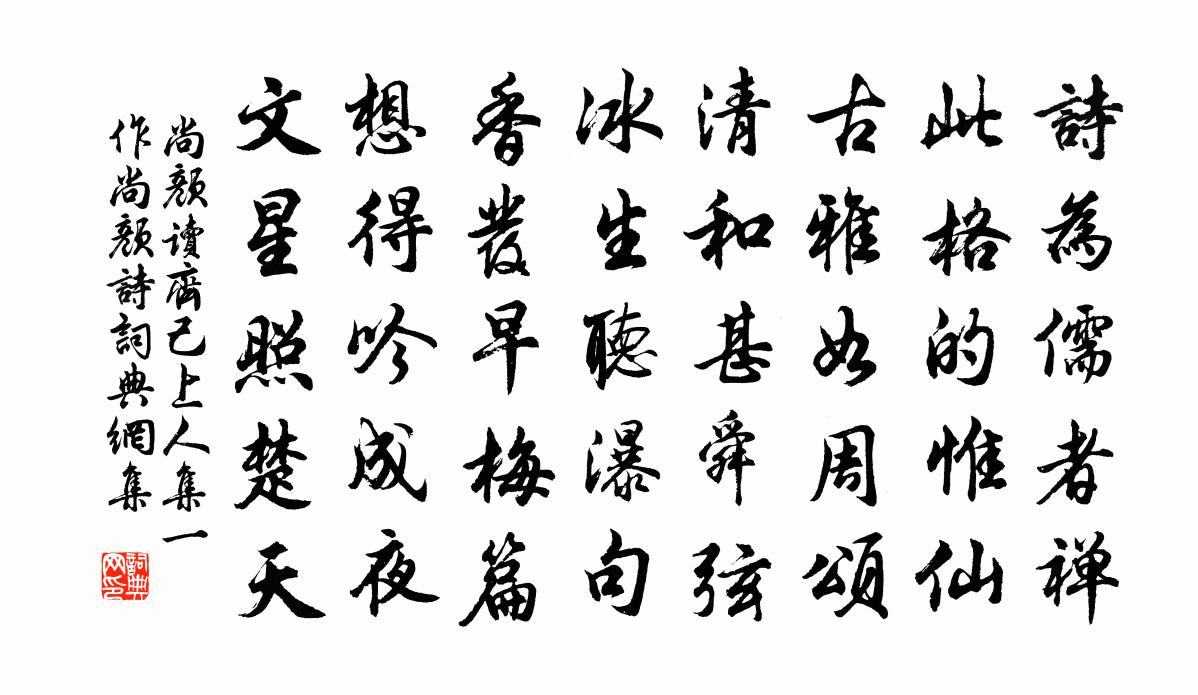 詩為儒者禅
此格的惟仙
古雅如周頌
清和甚舜弦
冰生聽瀑句
香發早梅篇
想得吟成夜
文星照楚天
尚顏讀齊己上人集一
作尚顏詩詞典網集
詞典
网印